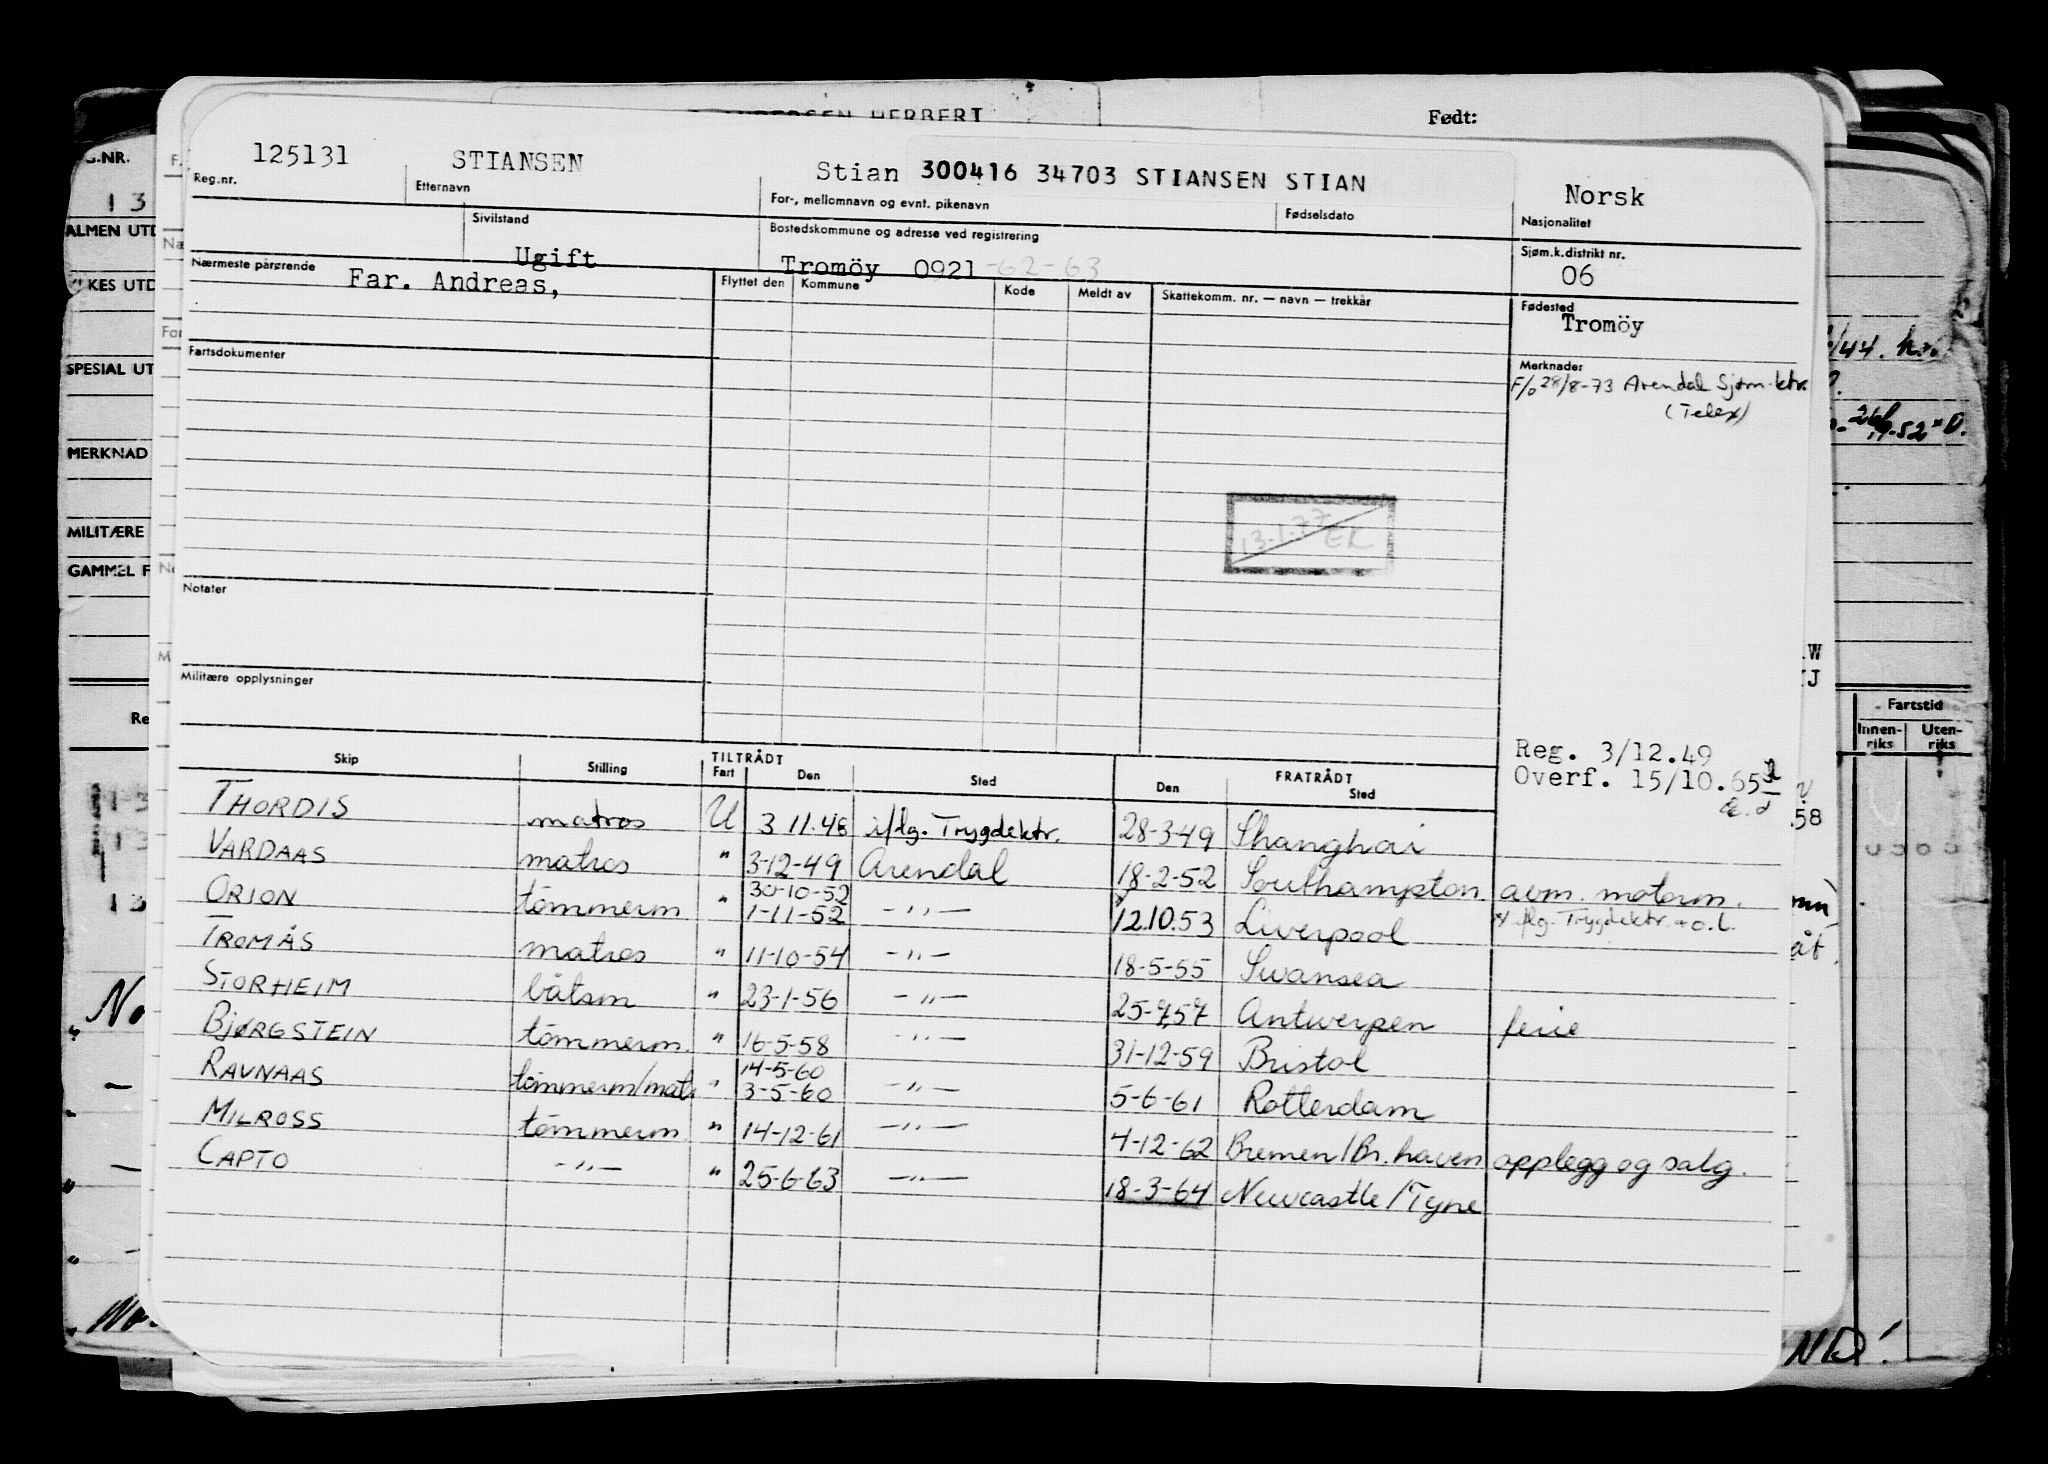 NDERSEN HERBERT
Født:
125131 STIANSEN Stian 300416 34703 STIANSEN STIAN Norsk
Reg.nr. Etternavn For-, mellomnavn og evnt. pikenavn Fødselsdato Nasjonalitet
Sivilstand Bostedskommune og adresse ved registrering Sjøm.k.distrikt nr.
Ugift Tromöy 0921 -62-63 06
Nærmeste pårørende Flyttet den Kommune Kode Meldt av Skattekomm. nr. — navn — trekkår Fødested
Far. Andreas, Tromöy
Fartsdokumenter Merknader
F/o 28/8-73 Arendal Sjøm.ktr.
(Telex)
13-1.77 EL
Notater
Militære opplysninger
Reg. 3/12.49
Overf. 15/10.65
Skip Stilling TILTRÅDT FRATRÅDT
Fart Den Sted Den Sted
THORDIS matros U 3 11.46 i/flg. Trygdektr. 28-3-49 Shanghai
VARDAAS matros " 3-12-49 Arendal 18-2-52 Southampton avm. motorm.
ORION tömmerm " 30-10-52 1-11-52 —"— 12.10.53 Liverpool x/ flg. Trygdektr. + o.l.
TROMÅS matros " 11-10-54 —"— 18-5-55 Swansea
STORHEIM båtsm " 23-1-56 —"— 25-7-57 Antwerpen ferie
BJØRGSTEIN tömmerm. " 16-5-58 —"— 31-12-59 Bristol
RAVNAAS tömmerm/mats " 14-5-60 3-5-60 —"— 5-6-61 Rotterdam
MILROSS tömmerm " 14-12-61 —"— 4-12-62 Bremen/Br.haven opplegg og salg.
CAPTO —"— " 25-6-63 —"— 18-3-64 Newcastle/Tyne
G.NR.
13
ALMEN UTD
KES UTD
SPESIAL UT
MERKNAD
MILITÆRE
GAMMEL F
Re
No
/44.
-52
Fartstid
Innen-riks Uten-riks
58